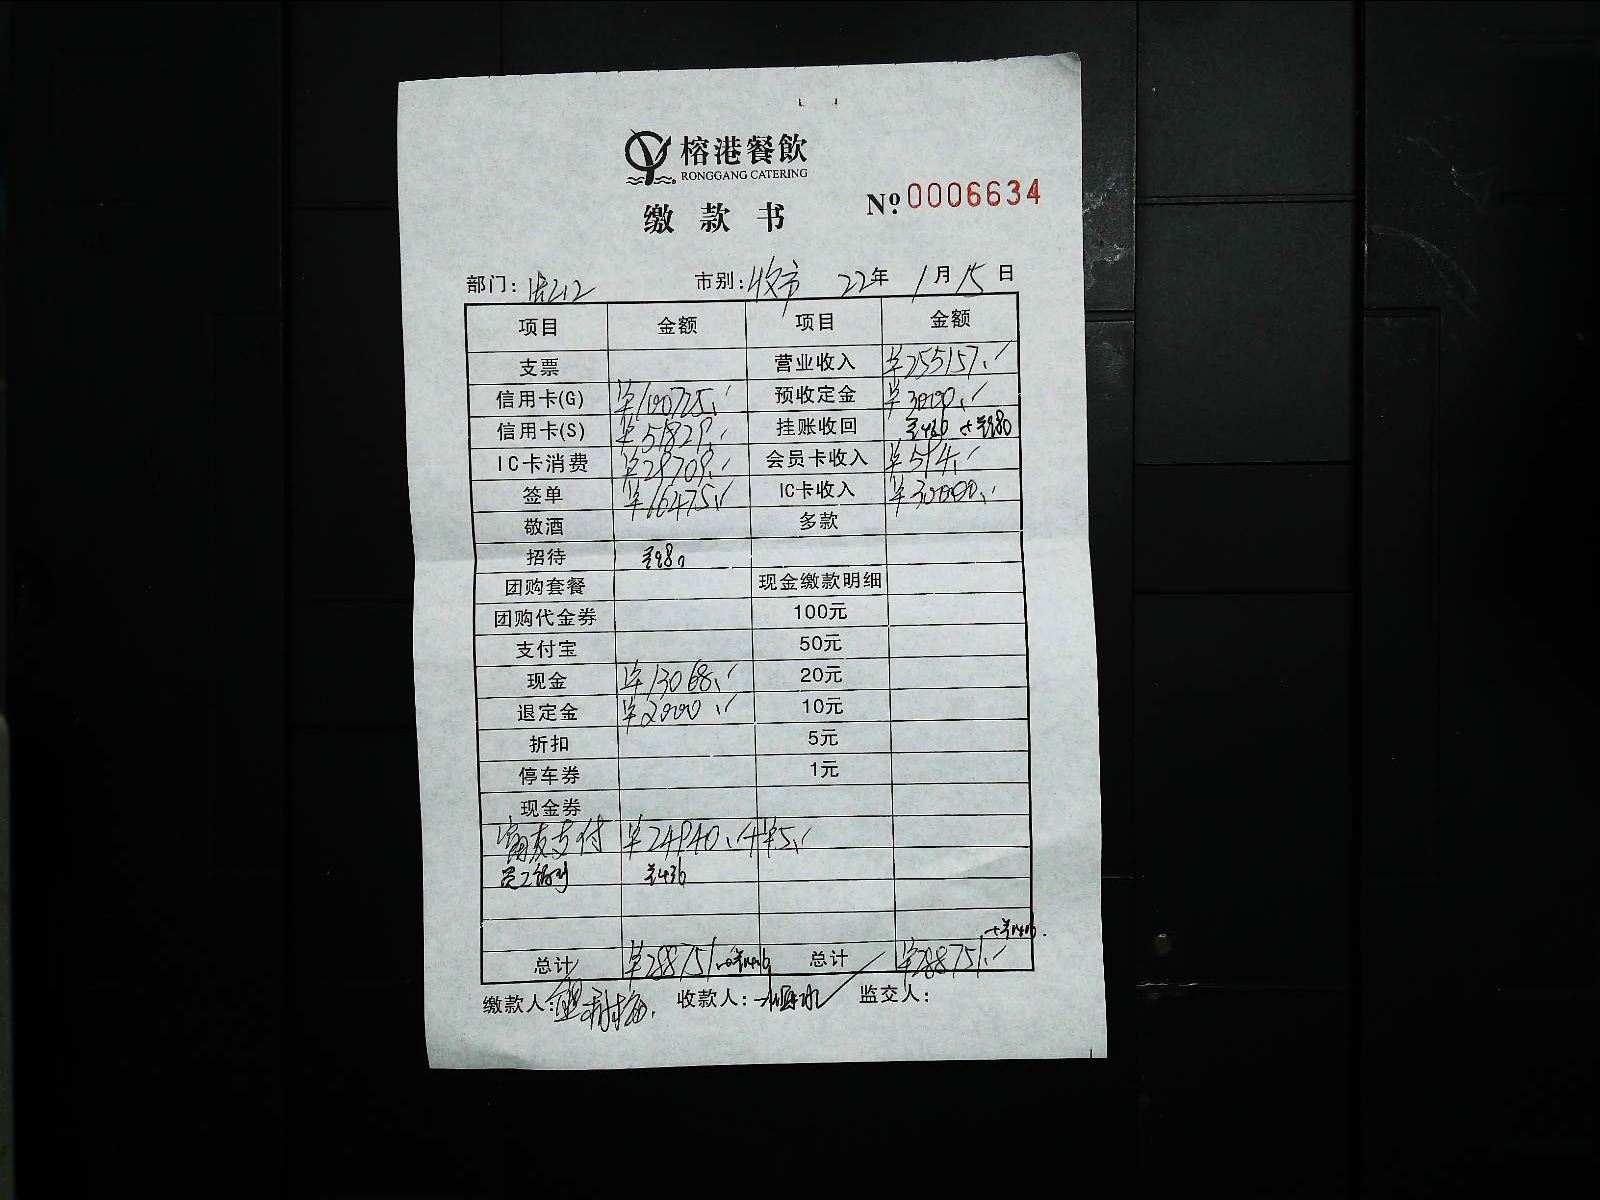 榕港餐飲
RONGGANG CATERING
缴款书
Nº 0006634
部门: 市别: 收市 22年 1月 15日
项目 金额 项目 金额
支票 营业收入 ¥255157.
信用卡(G) ¥100725. 预收定金 ¥3000.
信用卡(S) ¥51829. 挂账收回 ¥436 +¥980
IC卡消费 ¥28709. 会员卡收入 ¥594.
签单 ¥16475. IC卡收入 ¥30000.
敬酒 多款
招待 ¥980
团购套餐 现金缴款明细
团购代金券 100元
支付宝 50元
现金 ¥13068. 20元
退定金 ¥2000. 10元
折扣 5元
停车券 1元
现金券
富友支付 ¥24940. +¥5.
¥436
+¥1416.
总计 ¥288751. +¥1416 总计 ¥288751.
缴款人: 收款人: 监交人: